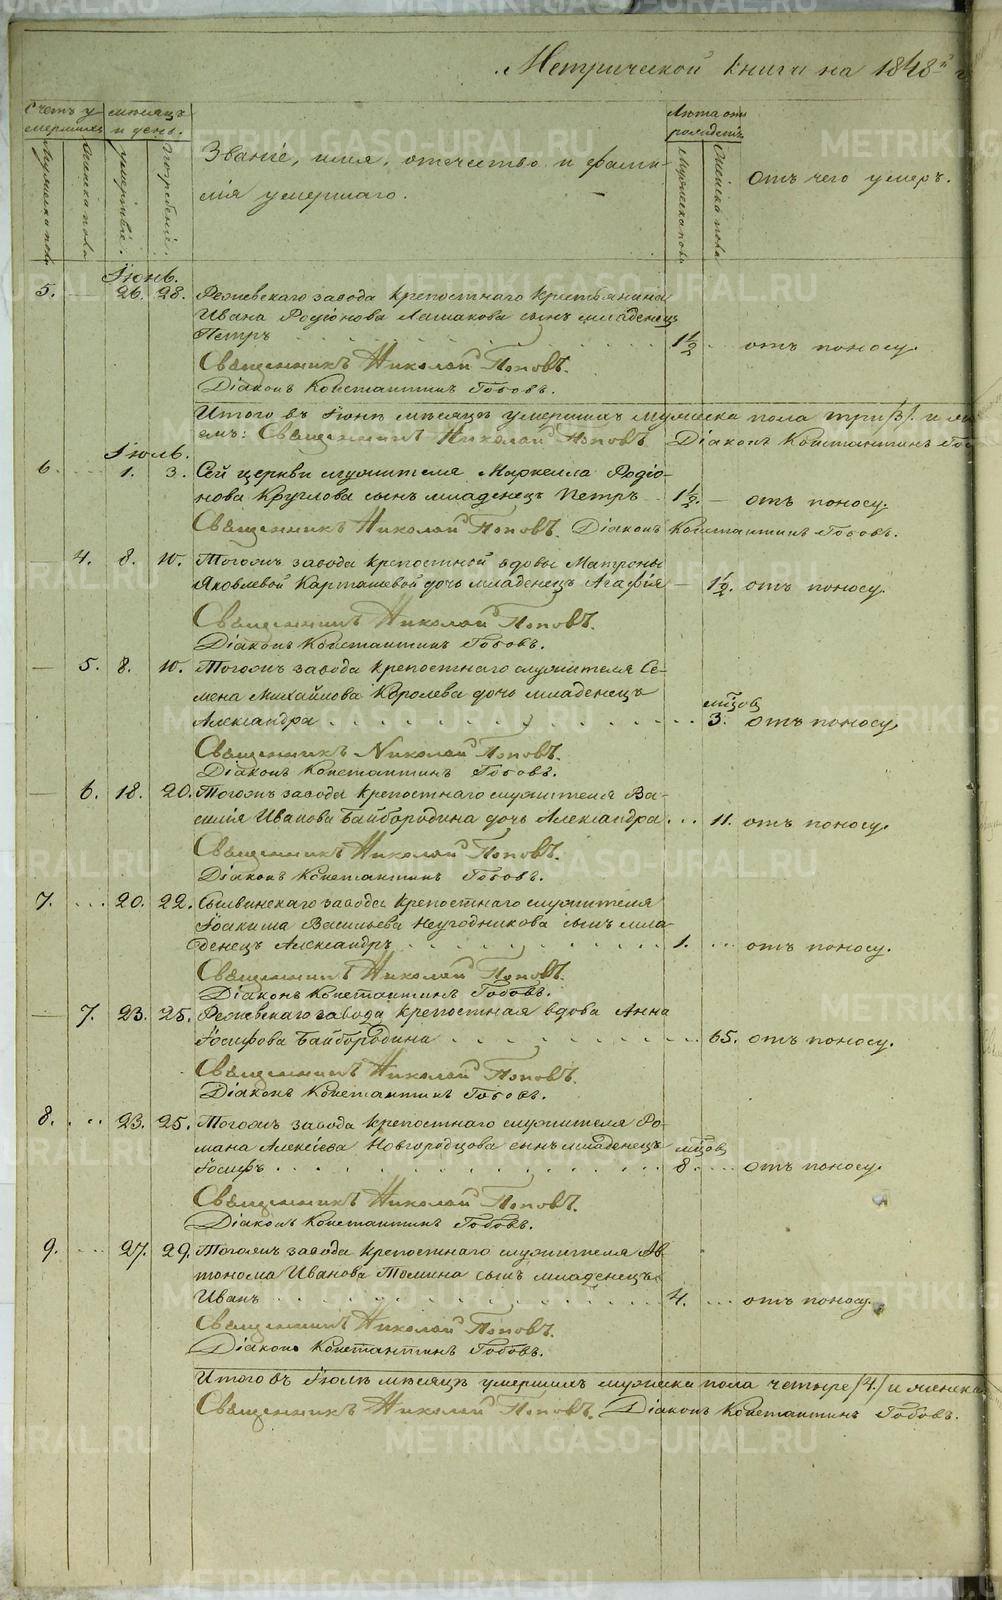 Метрической книги на 1848й г
Счетъ у- мѣсяцъ Лѣта отъ
мершихъ и день. рожденія
Мужеска пола Женска пола умертвіе. погребеніе. Званіе, имя, отечество и фами- Мужеска пола Женска пола Отъ чего умеръ.
лія умершаго.
Іюнь.
5. 26. 28. Режевскаго завода крепостнаго крестьянина
Ивана Родіонова Лашакова сынъ младенецъ
Петръ 1½ отъ поносу.
Священникъ Николай Поповъ.
Діаконъ Константинъ Гобовъ.
Итого въ Іюнѣ мѣсяцѣ умершихъ мужеска пола три /3/. и
Священникъ Николай Поповъ Діаконъ Константинъ
Іюль.
6. 1. 3. Сей церкви служителя Маркелла Родіо-
нова Круглова сынъ младенецъ Петръ 1½. отъ поносу.
Священникъ Николай Поповъ. Діаконъ Константинъ Гобовъ.
4. 8. 10. Тогожъ завода крепостной вдовы Матроны
Яковлевой Карташевой дочь младенецъ Агафія 1½. отъ поносу.
Священникъ Николай Поповъ.
Діаконъ Константинъ Гобовъ.
5. 8. 10. Тогожъ завода крепостнаго служителя Се-
мена Михайлова Королева дочь младенецъ
Александра мѣсцов 3. отъ поносу,
Священникъ Николай Поповъ.
Діаконъ Константинъ Гобовъ.
6. 18. 20. Тогожъ завода крепостнаго служителя Ва-
силія Иванова Байбородина дочь Александра 11. отъ поносу.
Священникъ Николай Поповъ.
Діаконъ Константинъ Гобовъ.
7. 20. 22. Сылвинскаго завода крепостнаго служителя
Іоакима Васильева Неугодникова сынъ мла-
денецъ Александръ 1. отъ поносу.
Священникъ Николай Поповъ.
Діаконъ Константинъ Гобовъ.
7. 23. 25. Режевскаго завода крепостная вдова Анна
Іосифова Байбородина 65. отъ поносу.
Священникъ Николай Поповъ.
Діаконъ Константинъ Гобовъ.
8. 23. 25. Тогожъ завода крепостнаго служителя Ро-
мана Алексіева Новгородцова сынъ младенецъ мѣсцов
Іосифъ 8. отъ поносу.
Священникъ Николай Поповъ.
Діаконъ Константинъ Гобовъ.
9. 27. 29. Тогожъ завода крепостнаго служителя Ав-
тонома Иванова Томина сынъ младенецъ
Иванъ 4. отъ поносу.
Священникъ Николай Поповъ.
Діаконъ Константинъ Гобовъ.
Итого въ Іюлѣ мѣсяцѣ умершихъ мужеска пола четыре /4/ и женска
Священникъ Николай Поповъ. Діаконъ Константинъ Гобовъ.
METRIKI.GASO-URAL.RU